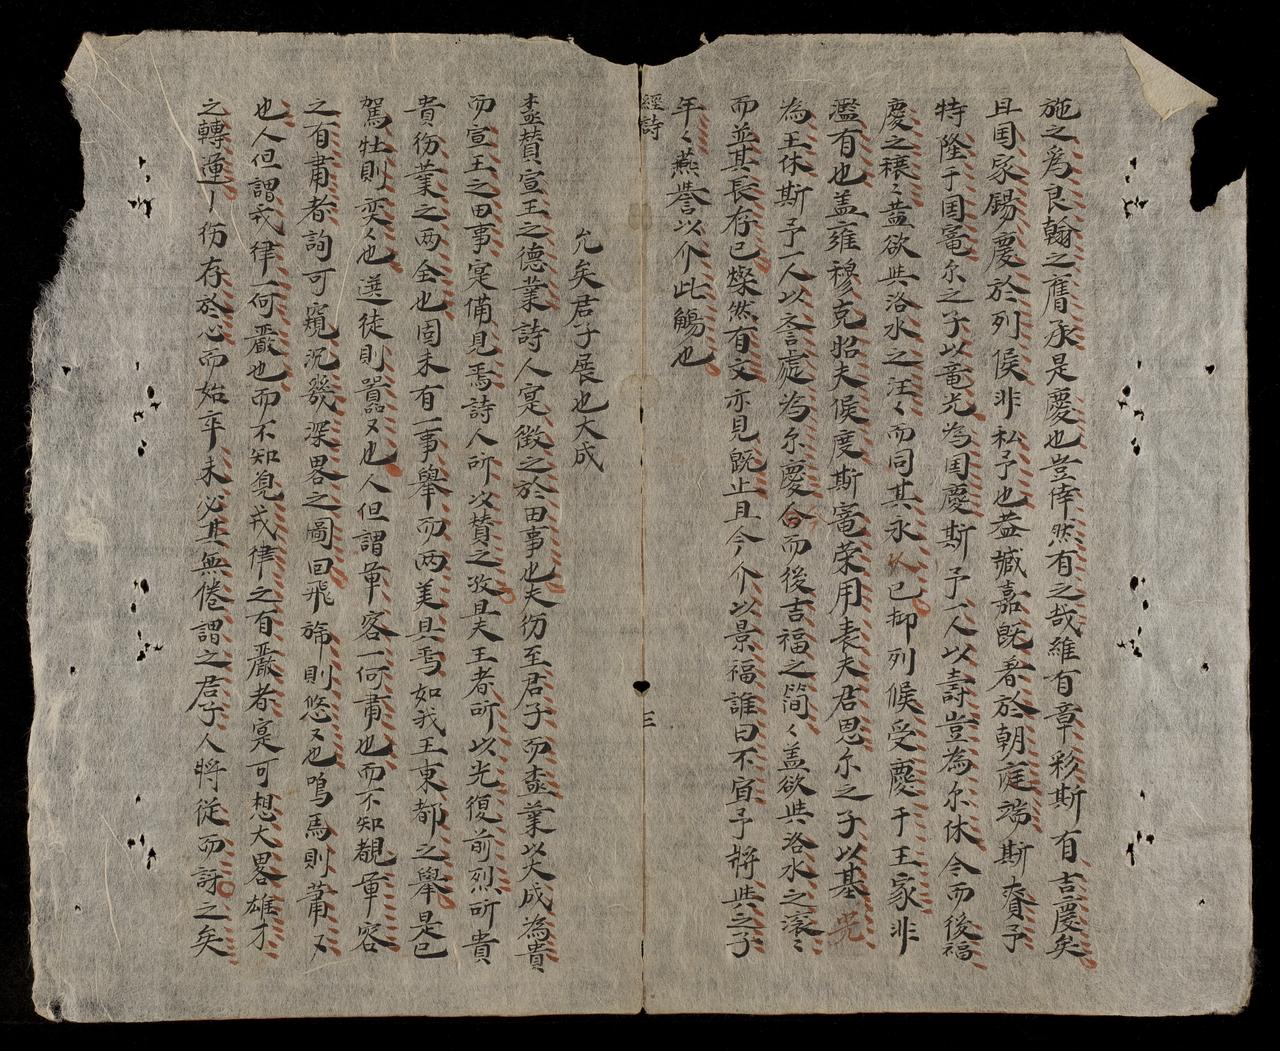 施之為良翰之膺承是慶也豈倖然有之哉維有章彩斯有吉慶矣
且国家賜慶於列侯非私予也盖臧嘉既看於朝庭端斯賚予
特隆于国寵尔之子以竜光為国慶斯予一人以壽豈為尔休今而後福
慶之穰〻盖欲與洛水之汪〻而同其永久已抑列候受慶于王家非
濫有也盖雍穆克昭夫侯度斯寵荣用表夫君恩尔之子以基
為王休斯予一人以言處為尔慶今而後吉福之简〻盖欲與洛水之滾〻
而並其長存已燦然有文亦見既止且今介以景福誰曰不宜予將與之子
年〻燕誉以介此觴也
經詩
三
允矣君子展也大成
赞宣王之德業詩人寔徵之於田事也夫彷至君子而業以大成為貴
而宣王之田事寔備見焉詩人所以赞之孜且夫王者所以光復前烈所貴
貴彷業之两全也固未有一事舉而两美具焉如我王東都之舉是已
駕牡則奕〻也選徒則囂又也人但謂軍容一何肅也而不知覩軍容
之有肅者詢可窺沉幾深畧之圖回飛旆則悠又也鳴馬則萧又
也人但謂戎律一何嚴也而不知覓戎律之有嚴者寔可想大畧雄才
之轉運彷存於心而始卒未必其無倦謂之君子人將從而訝之矣